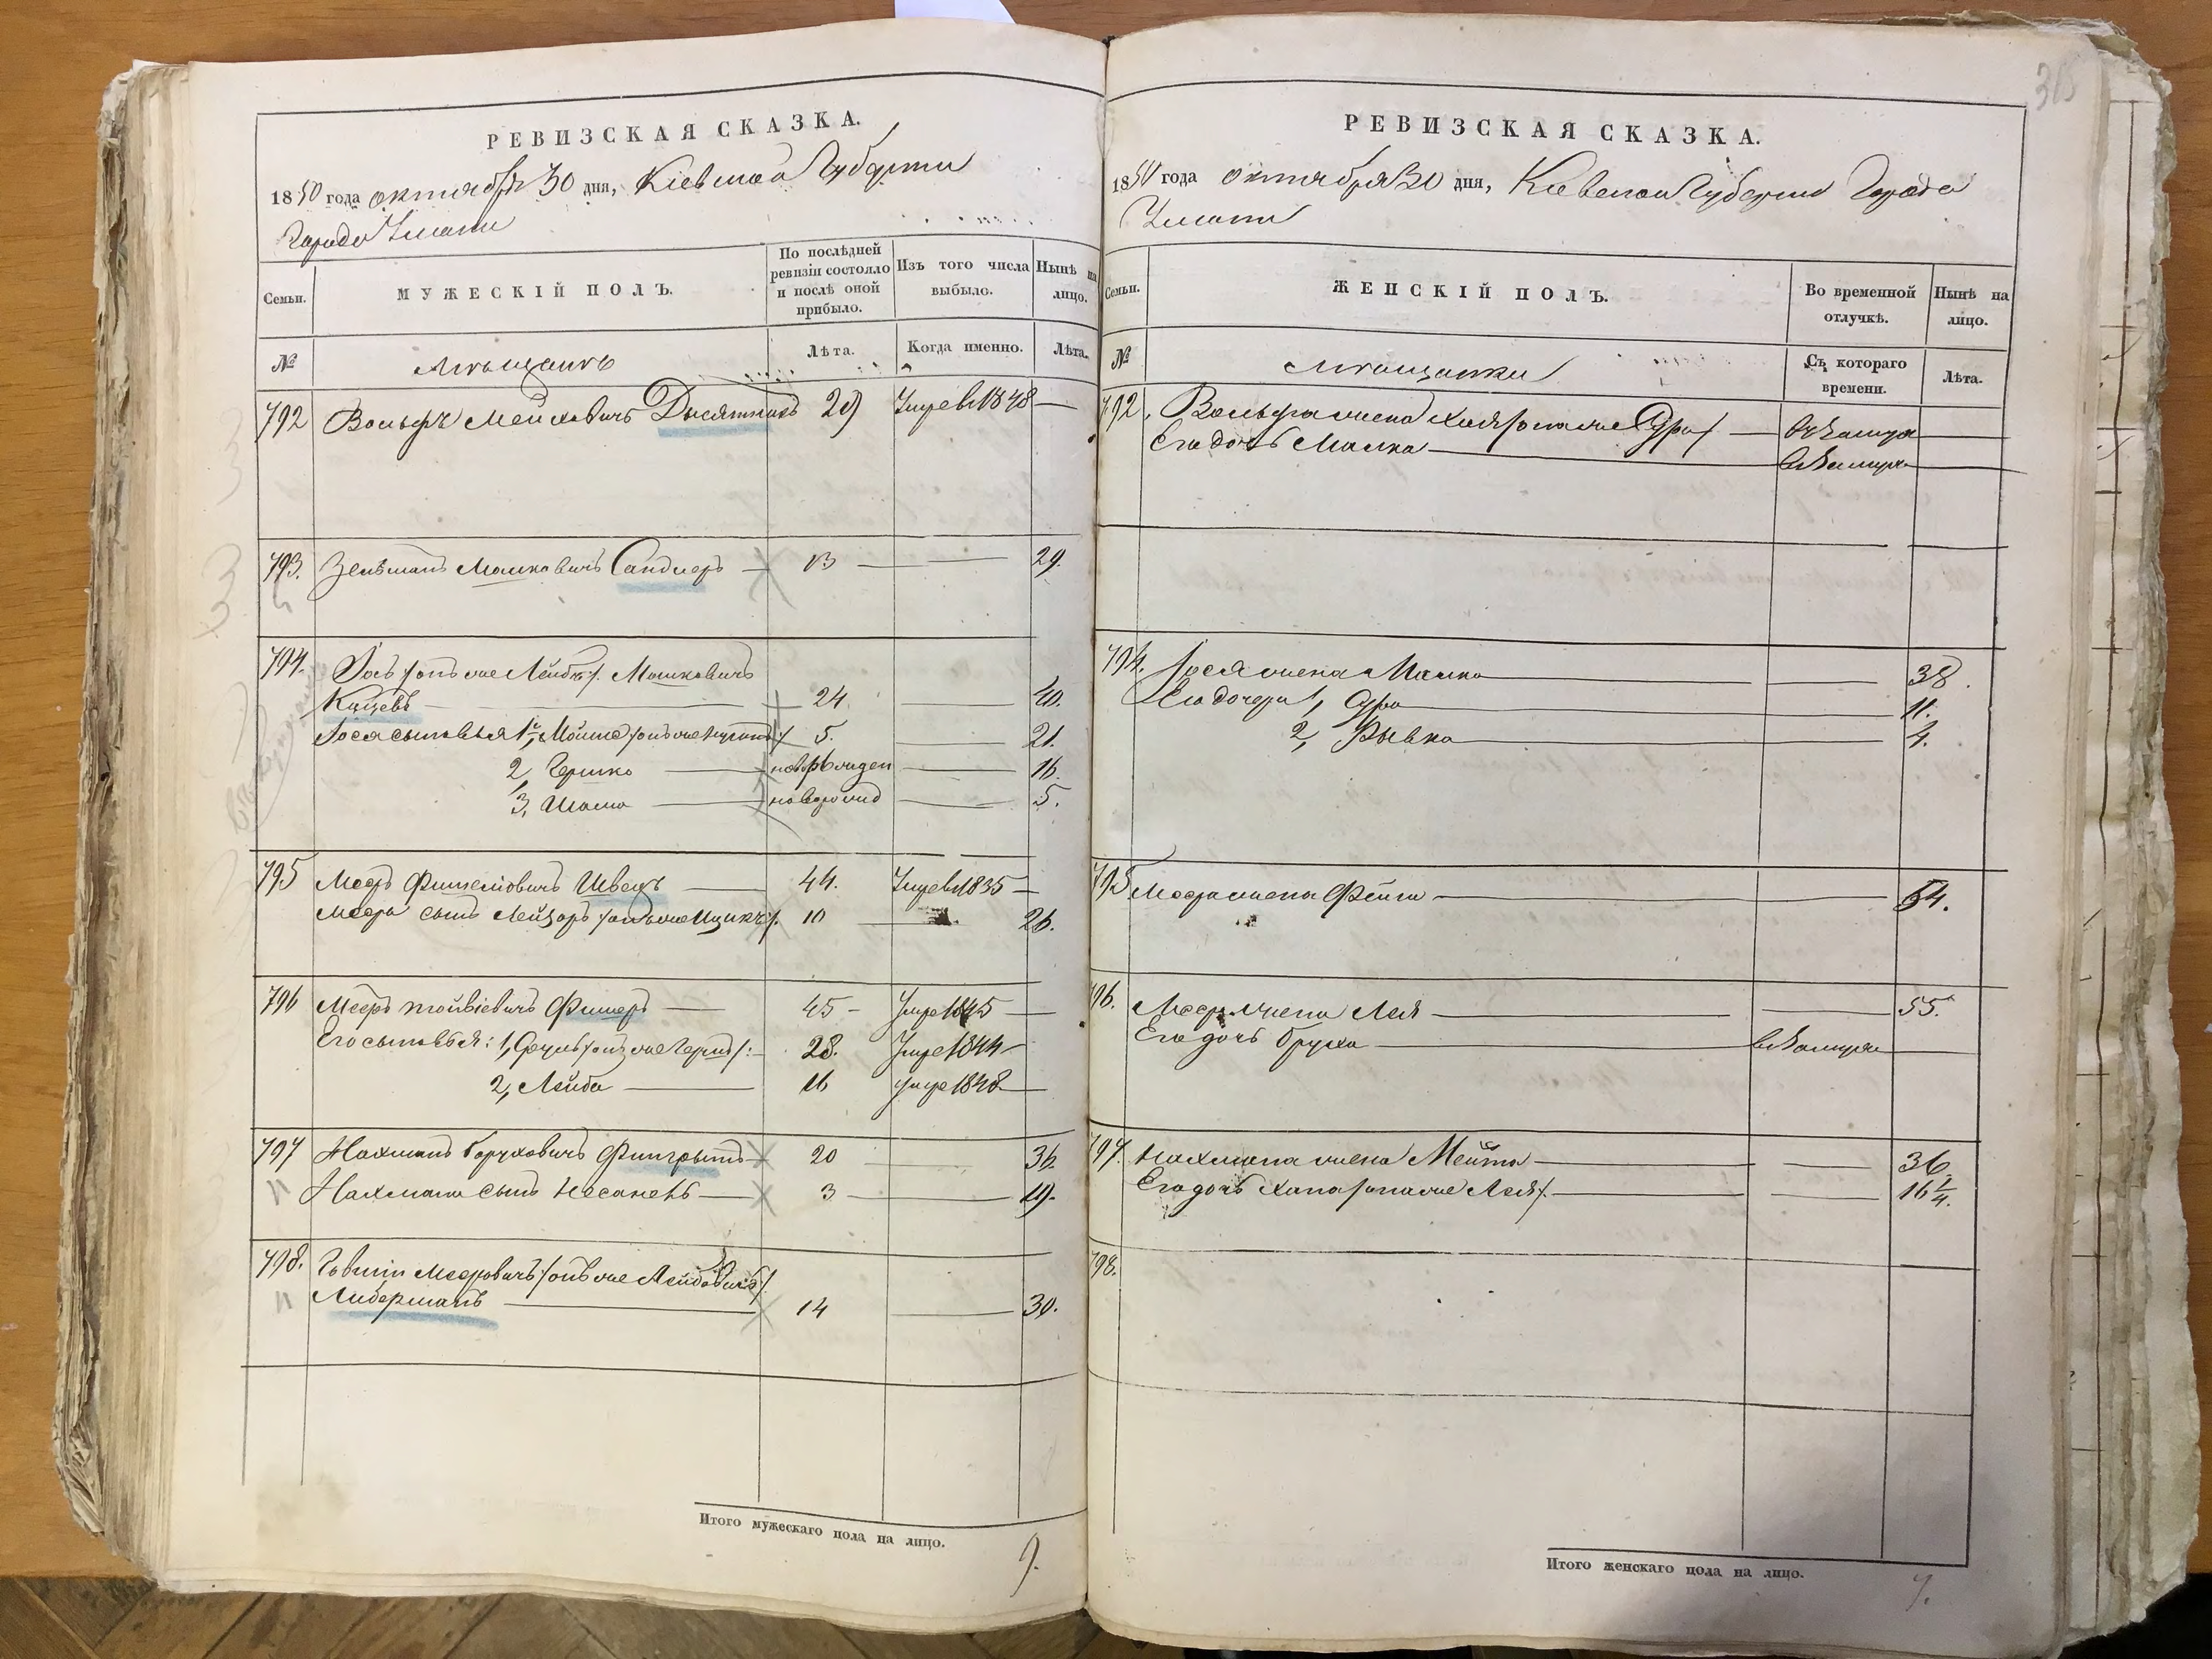 РЕВИЗСКАЯ СКАЗКА.
1850 года октября 30 дня, Кіевской Губерніи
Города Умани
Семьи.
МУЖЕСКІЙ ПОЛЪ.
По послѣдней
ревизіи состояло
и послѣ оной
прибыло.
Изъ того числа
выбыло.
Нынѣ на
лицо.
№
Мѣщанъ
Лѣта.
Когда именно.
Лѣта.
792 Вольфъ Мошковичъ 29 Умре въ 1848
793. Зельманъ Мошковичъ Сандлеръ 13 29.
794. Іось /онъ же Лейба/. Мошковичъ
24 40.
Іося сыновья 1й, Мошко /онъ же 5. 21.
2, Гершко новорожден 16.
3, Шама новорожд 5.
795 Мееръ Фишелiовичъ Швецъ 44. Умре въ 1835
Меера сынъ Лейзоръ /онъ же Ицикъ/. 10 26.
796 Мееръ Фишеръ 45 Умре 1845
Его сыновья: 1, /онъ же Герша/: 28. Умре 1844
2, Лейба 16 умре 1848
797 Нахманъ Боруховичъ 20 36.
Нахмана сынъ Несанель 3 19.
798. Мееровичъ /онъ же Лейбовичъ/.
Либерманъ 14 30.
Итого мужескаго пола на лицо.
9.
315
РЕВИЗСКАЯ СКАЗКА.
1850 года октября 30 дня, Кіевской Губерніи Города
Умани
Семьи.
ЖЕНСКІЙ ПОЛЪ.
Во временной
отлучкѣ.
Нынѣ на
лицо.
№
Мѣщанки
Съ котораго
времени.
Лѣта.
792. Вольфа жена Хая /она же Сура/
Его дочь Малка
794. Іося жена Малка 38.
Его дочери 1, Сура 11.
2, Рывка 4.
795 Меера жена Фейга 54.
796. Меера жена Лея 55.
Его дочь Бруха
797. Нахмана жена Мейта 36.
Его дочь Хана /она же Лея/. 16 1/4.
798.
Итого женскаго пола на лицо.
7.